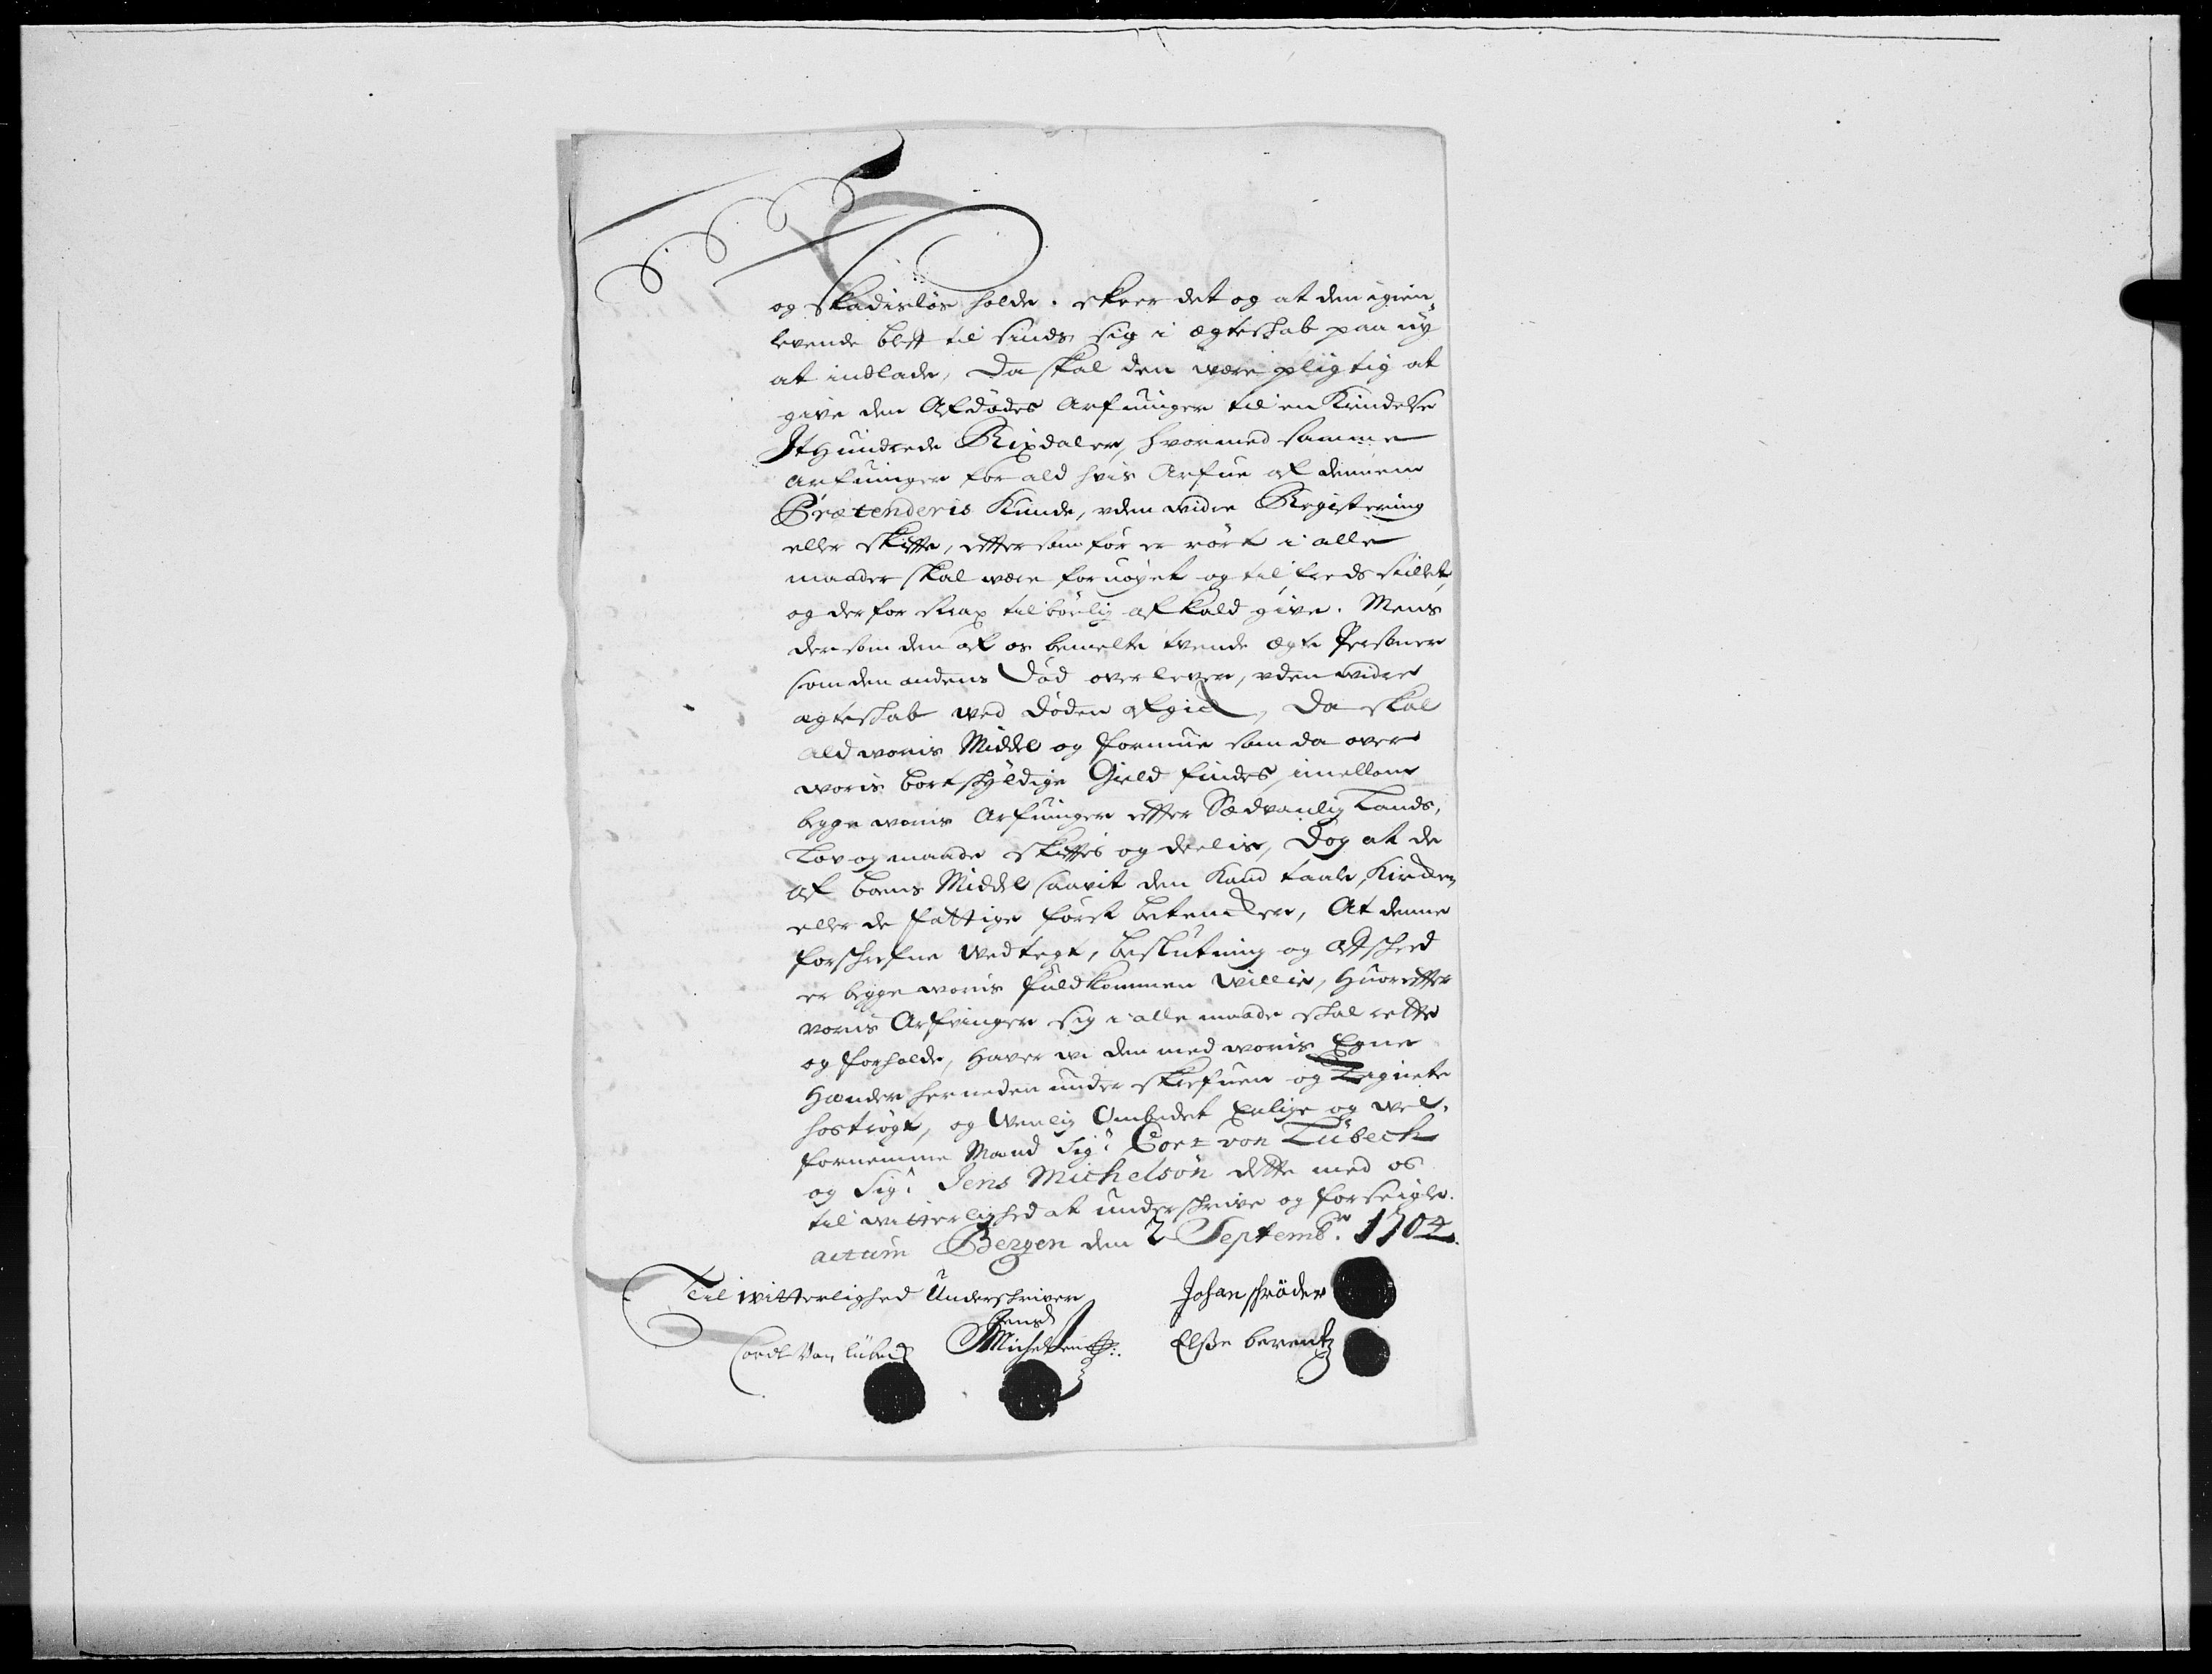 og skadisløs holde. skeer det og at den igien¬
levende blef til sinds sig i ægteskab paa ny
at indlade, da skal den være pligtig at
give den Afdødes Arfvinger til en Kiendelse
It Hundrede Rixdaler, hvormed samme
Arfuinger for ald hvis Arfue af dennem
Prætenderis Kunde, uden widre Registering
eller skifte, effter som før er rørt i alle
maader skal være fornøyet og til freds stillet,
og der for strax tilbørlig afkald give. Mens
dersom den af os bemelte tvende ægte Personer
som den andens Død overlever, uden widre
ægteskab wed døden afgick, da skal
ald woris Middel og formue som da over
woris bortskyldige Gield findes, imellem
begge woris Arfuinger effter Sædvanlig Lands,
Lov og maade skifftes og deelis, dog at de
af boens Middel saavit den Kand taale, Kircken
eller de fattige først betencker, At denne
forschrefne Wedtegt, beslutning og Affscheed
er begge woris fuldkommen Willie, Huoreffter
voris Arfvinger sig i alle maade skal rette
og forholde, Haver wi den med woris Egne
Hænder her neden under skrefuen og Zigneter
hostrøgt, og Wenlig Ombedet Erlige og wel¬
fornemme Mænd Sigr Cort von Lübeck
og Sigr Jens Michelsøn dette med os
til witterlighed at underschrive og forseigle.
actum Bergen den 2 Septembr. 1704.
Til witterlighed Underschriver
Johan schröder
Cordt Van lübeck
Jens
Michelsen
Elsße berentz